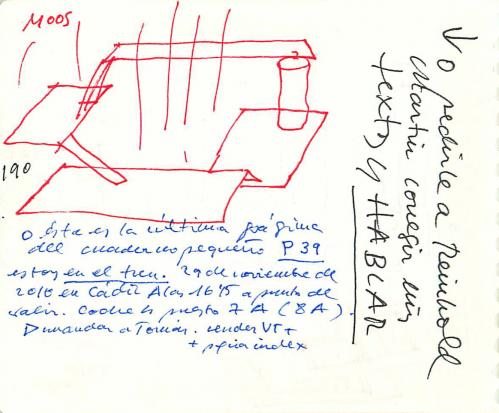 M005
190
o Esta es la última página
del cuaderno pequeño P 39
estoy en el tren. 29 de noviembre de
2010 en Cádiz A las 16'45 a punto de
salir. Coche 5 puesto 7A (8A).
a Tomás. vender VT +
+ index
Vo pedirle a Reinhold
Martin corregir mis
textos y HABLAR